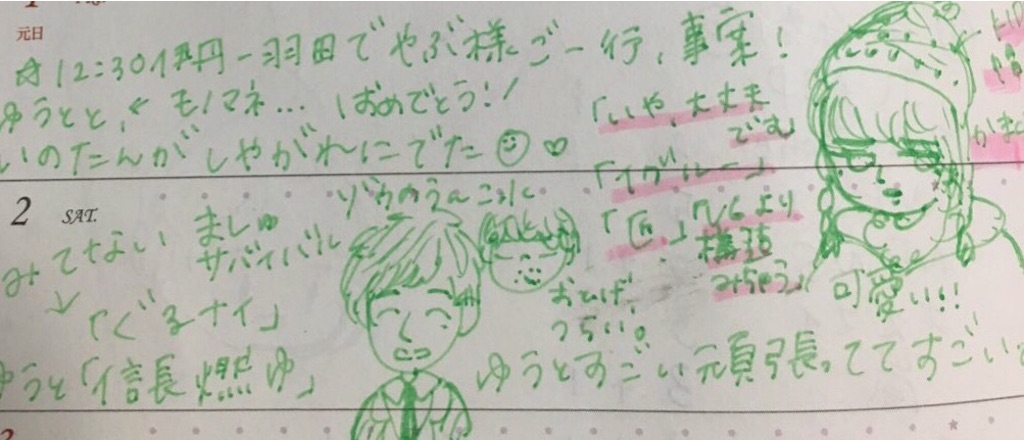 元日
☆12:30伊丹ー羽田でやぶ様ご一行、事案!
ゆうとと、← モノマネ… おめでとう!!
いのたんがしやがれにでた ☺ ♡
「いや、大丈夫
です」
「イグルー」
「匠」
「V6より
構造
みちゃう」
かまく
可愛い!!
2 SAT.
ゾウのうんこ水
みてない
ましゅ
サバイバル
「ぐるナイ」
おひげ
うらい。
ゆうと「信長燃ゆ」
ゆうとすごい頑張っててすごい